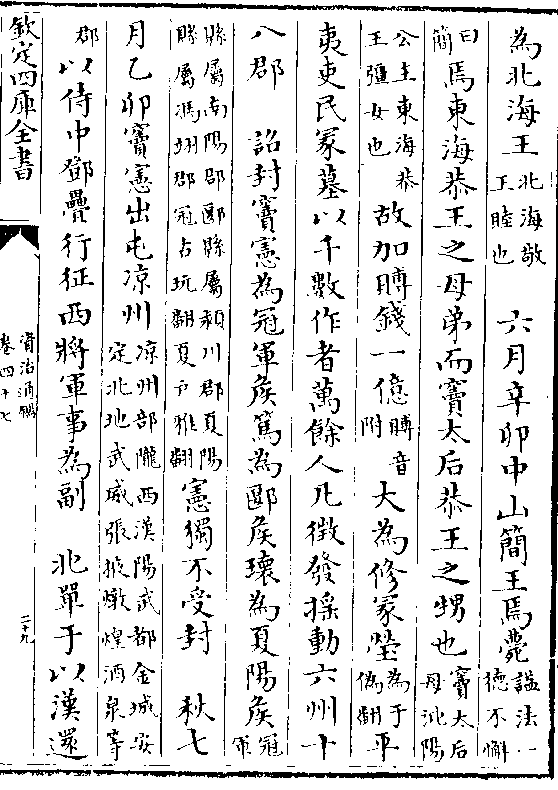 為北海王北海敬王睦也 六月辛卯中山簡王焉薨謚法一德不懈
曰簡焉東海恭王之母弟而竇太后恭王之甥也竇太后母沘陽
公主東海恭王彊女也故加賻錢一億賻音附大為修冢塋為于偽翻平
夷吏民冢墓以千數作者萬餘人凡徵發揺動六州十
八郡 詔封竇憲為冠軍侯篤為郾侯瓌為夏陽侯冠軍
縣屬南陽郡郾縣屬潁川郡夏陽縣屬馮翊郡冠古玩翻夏户雅翻憲獨不受封 秋七
月乙卯竇憲出屯涼州涼州部隴西漢陽武都金城安定北地武威張掖燉煌酒泉等
郡以侍中鄧疊行征西將軍事為副 北單于以漢還
欽定四庫全書
資治通鑑
卷四十七
二十九